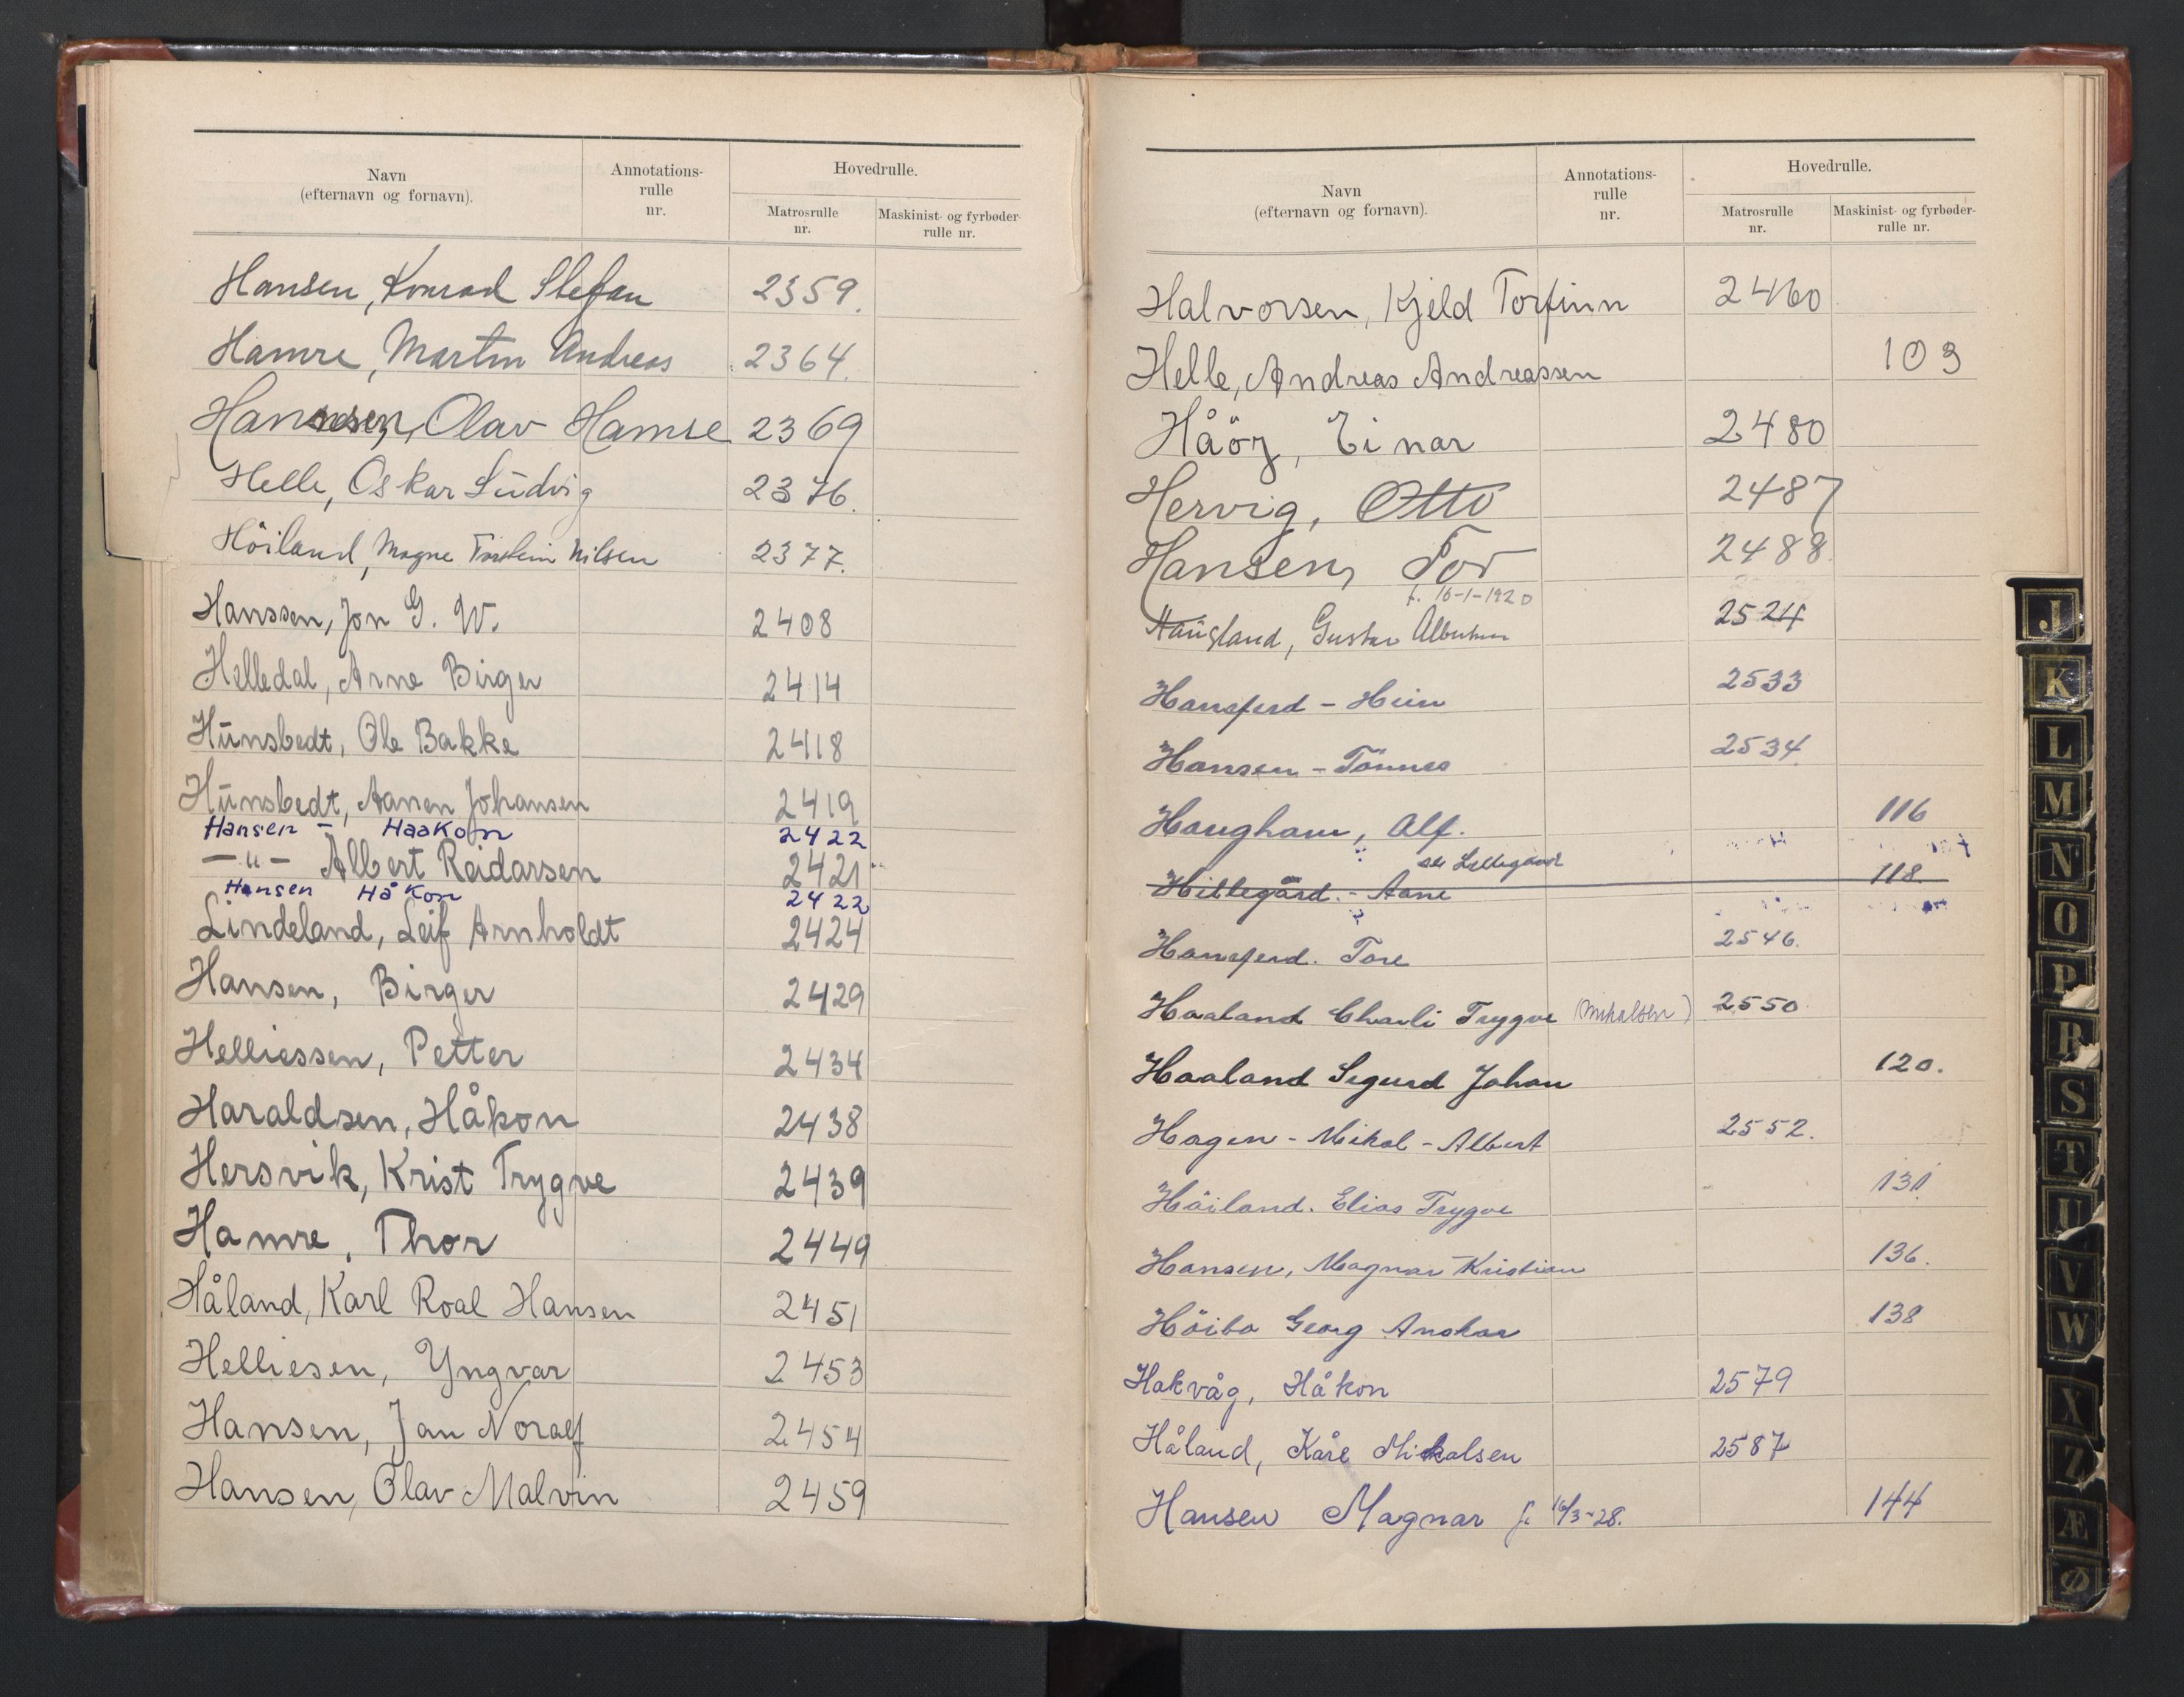 Navn
(efternavn og fornavn).
Annotations-
rulle
nr.
Hovedrulle.
Matrosrulle
nr.
Maskinist- og fyrbøder-
rulle nr.
Hansen, Konrad Stefan 2359.
Hamre, Martin Andreas 2364.
Hansen, Olav Hamre 2369
Helle, Oskar Ludvig 2376.
Höiland, Magne Torstein Nilsen 2377.
Hanssen, Jon G. W. 2408
Helledal, Arne Birger 2414
Hunsbedt, Ole Bakke 2418
Hunsbedt, Aanen Johansen 2419
Hansen - Haakon 2422
—"— Albert Reidarsen 2421
Hansen Håkon 2422
Lindeland, Leif Arnholdt 2424
Hansen, Birger 2429
Helliessen, Petter 2434
Haraldsen, Håkon 2438
Hersvik, Krist Trygve 2439
Hamre, Thor 2449
Håland, Karl Roal Hansen 2451
Helliesen, Yngvar 2453
Hansen, Jan Noralf 2454
Hansen, Olav Malvin 2459
Navn
(efternavn og fornavn).
Annotations-
rulle
nr.
Hovedrulle.
Matrosrulle
nr.
Maskinist- og fyrbøder-
rulle nr.
Halvorsen, Kjeld Torfinn 2460
Helle, Andreas Andreassen 103
Håöy, Einar 2480
Hervig, Otto 2487
Hansen, Tor 2488
f. 16-1-1920
Haugland, Gustav 2524
Hansferd - Hein 2533
Hansen - Tönnes 2534
Haugham, Alf. 116
se Lillegård
Hillegård. - Aane 118.
Hansferd. Tore 2546.
Haaland Charli Trygve (Mikalsen) 2550
Haaland Sigurd Johan 120.
Hagen - Mikal - Albert 2552.
Höiland. Elias Trygve 131
Hansen, Magnar Kristian 136.
Höibo Georg Anskar 138
Hakvåg, Håkon 2579
Håland, Kåre Mikalsen 2587
Hansen Magnar f. 16/3-28. 144
J
K
L
M
N
O
P
R
S
T
U
V
W
X
Z
Æ
Ø